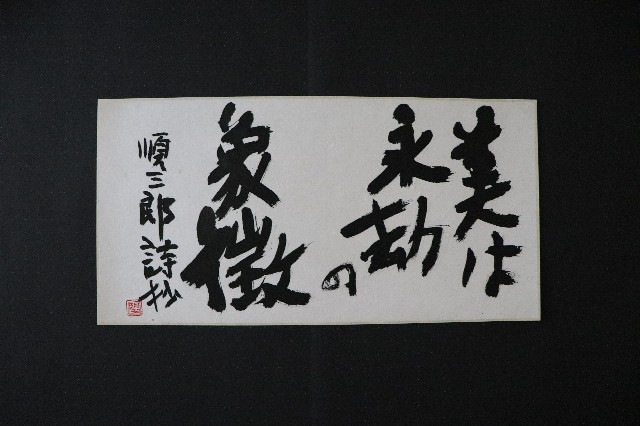 美は
永劫
の
象徴
順三郎詩抄